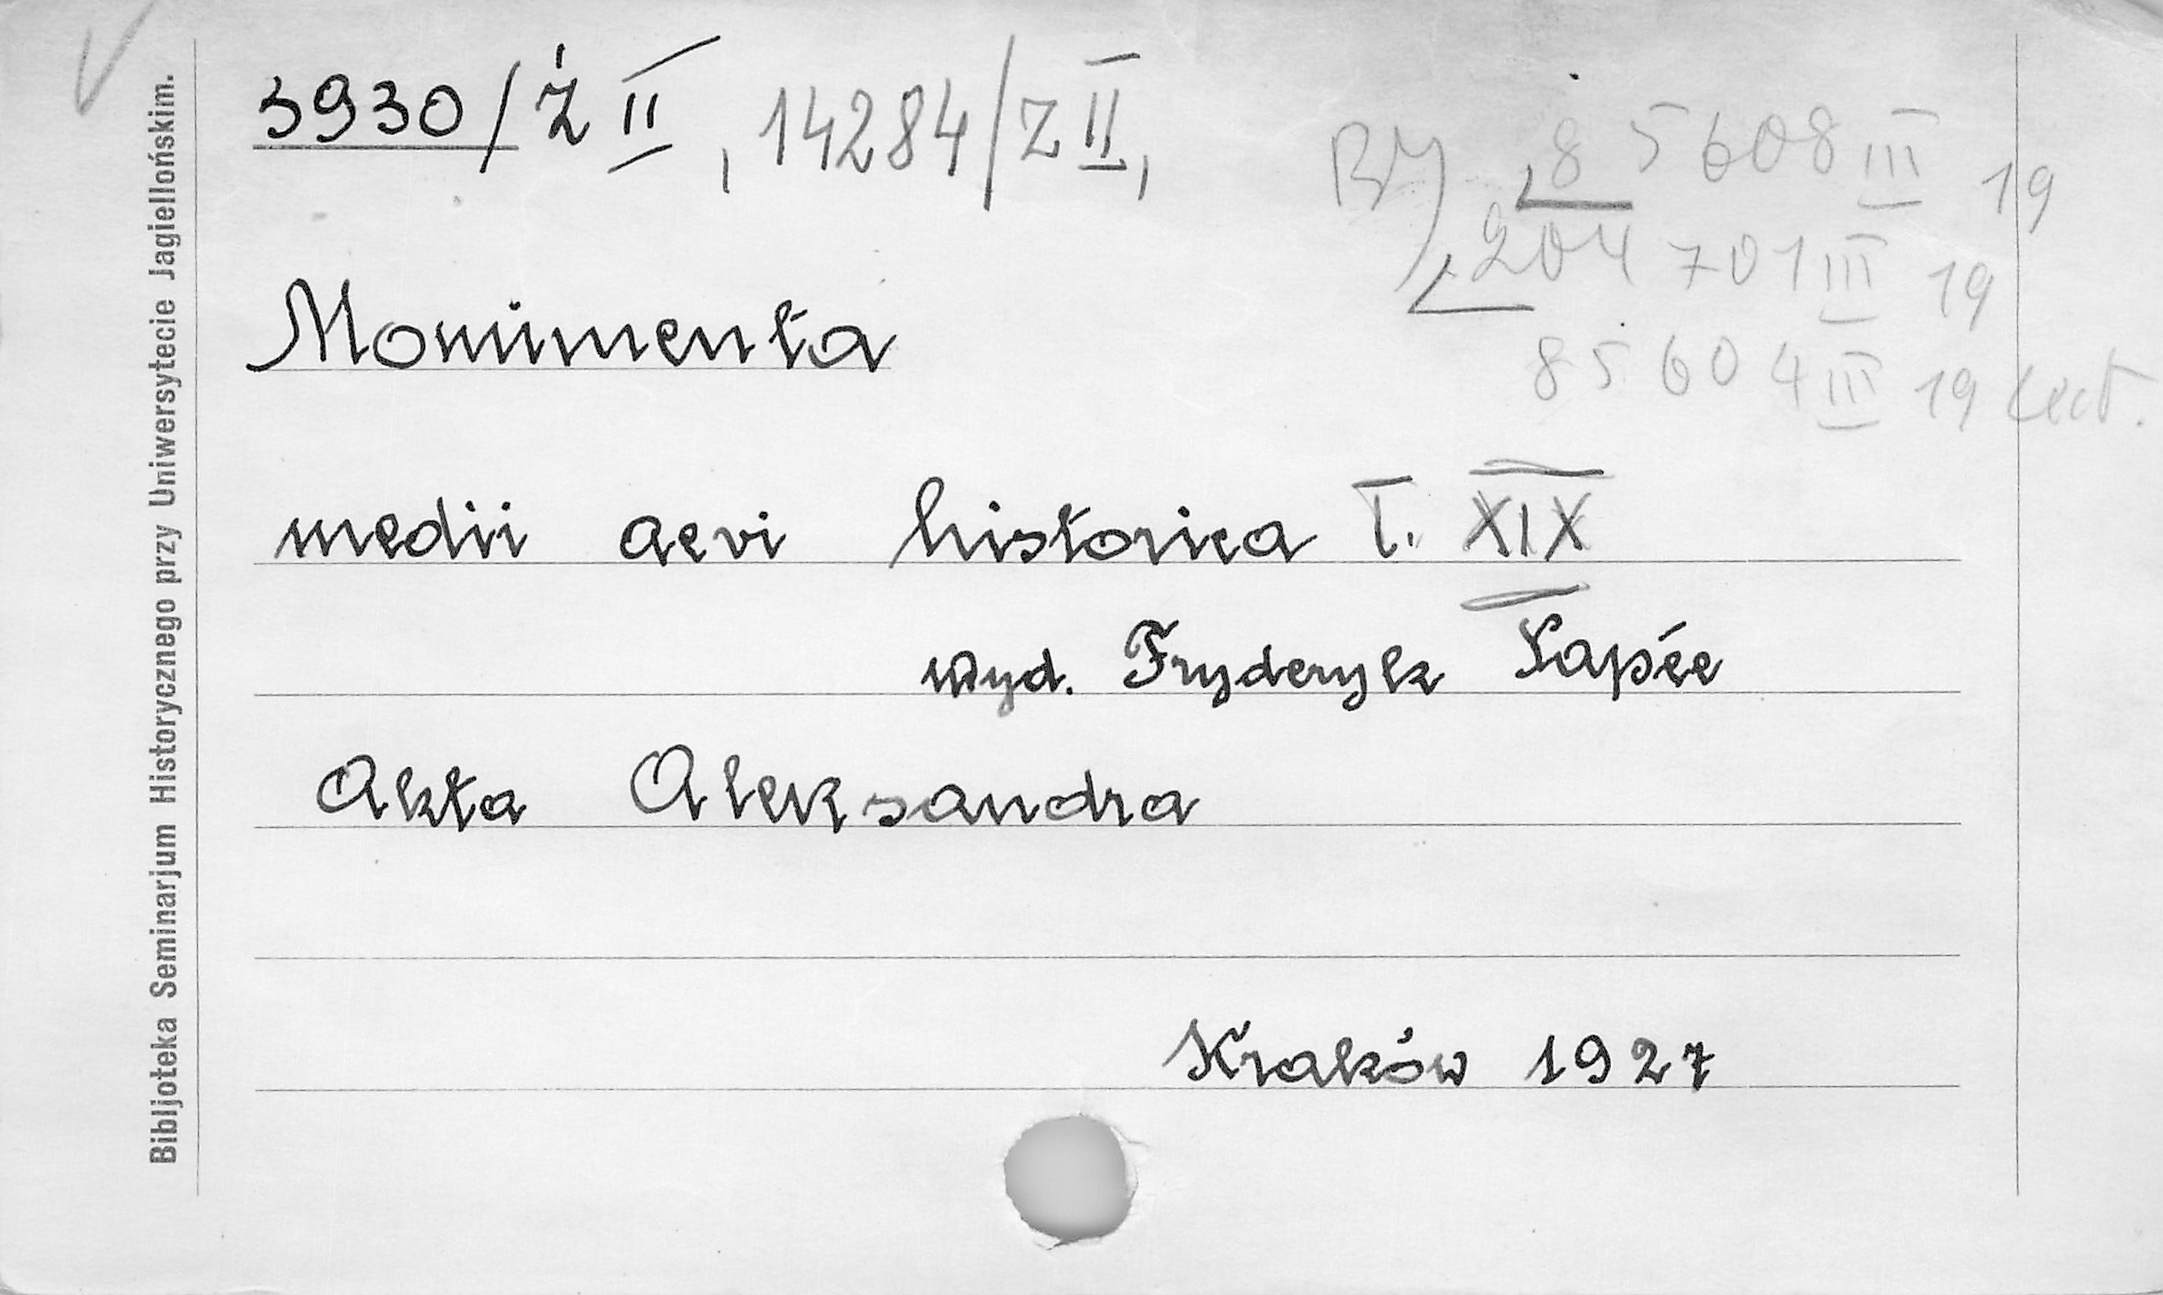 3930/Ż II, 14284/Z II,
BJ 85608 III 19
204701 III 19
85604 III 19 Lect.
Monumenta
medii aevi historica T. XIX
wyd. Fryderyk Papée
Akta Aleksandra
Kraków 1927
Bibljoteka Seminarjum Historycznego przy Uniwersytecie Jagiellońskim.